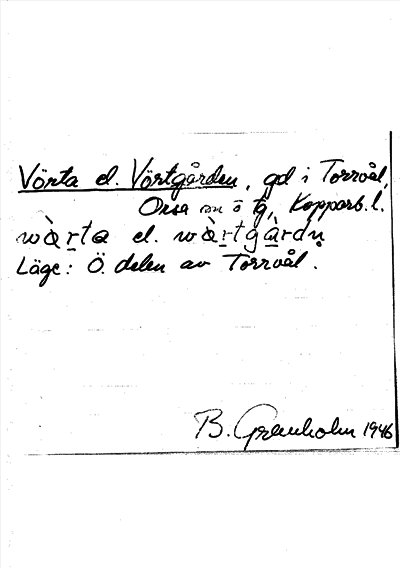 Vörta el. Vörtgården, gd i Torrvål,
Orsa sn o tg, Kopparb. l.
wàrta el. wàrtgàrdn̥
Läge: Ö. delen av Torrvål.
B. Grenholm 1946